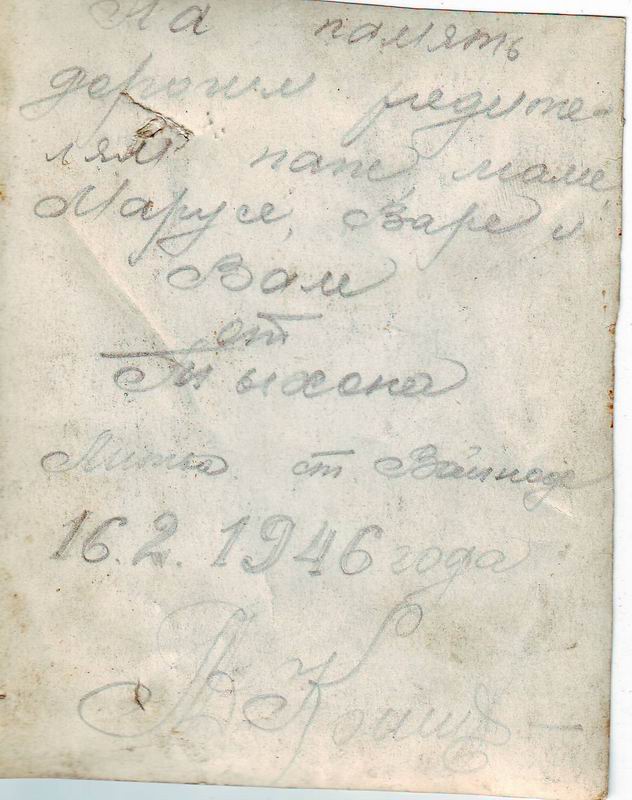 На память
дорогим родите-
лям папе, маме,
Марусе, Варе и
Вам
от
Тихона
ст.
16.2.1946 года